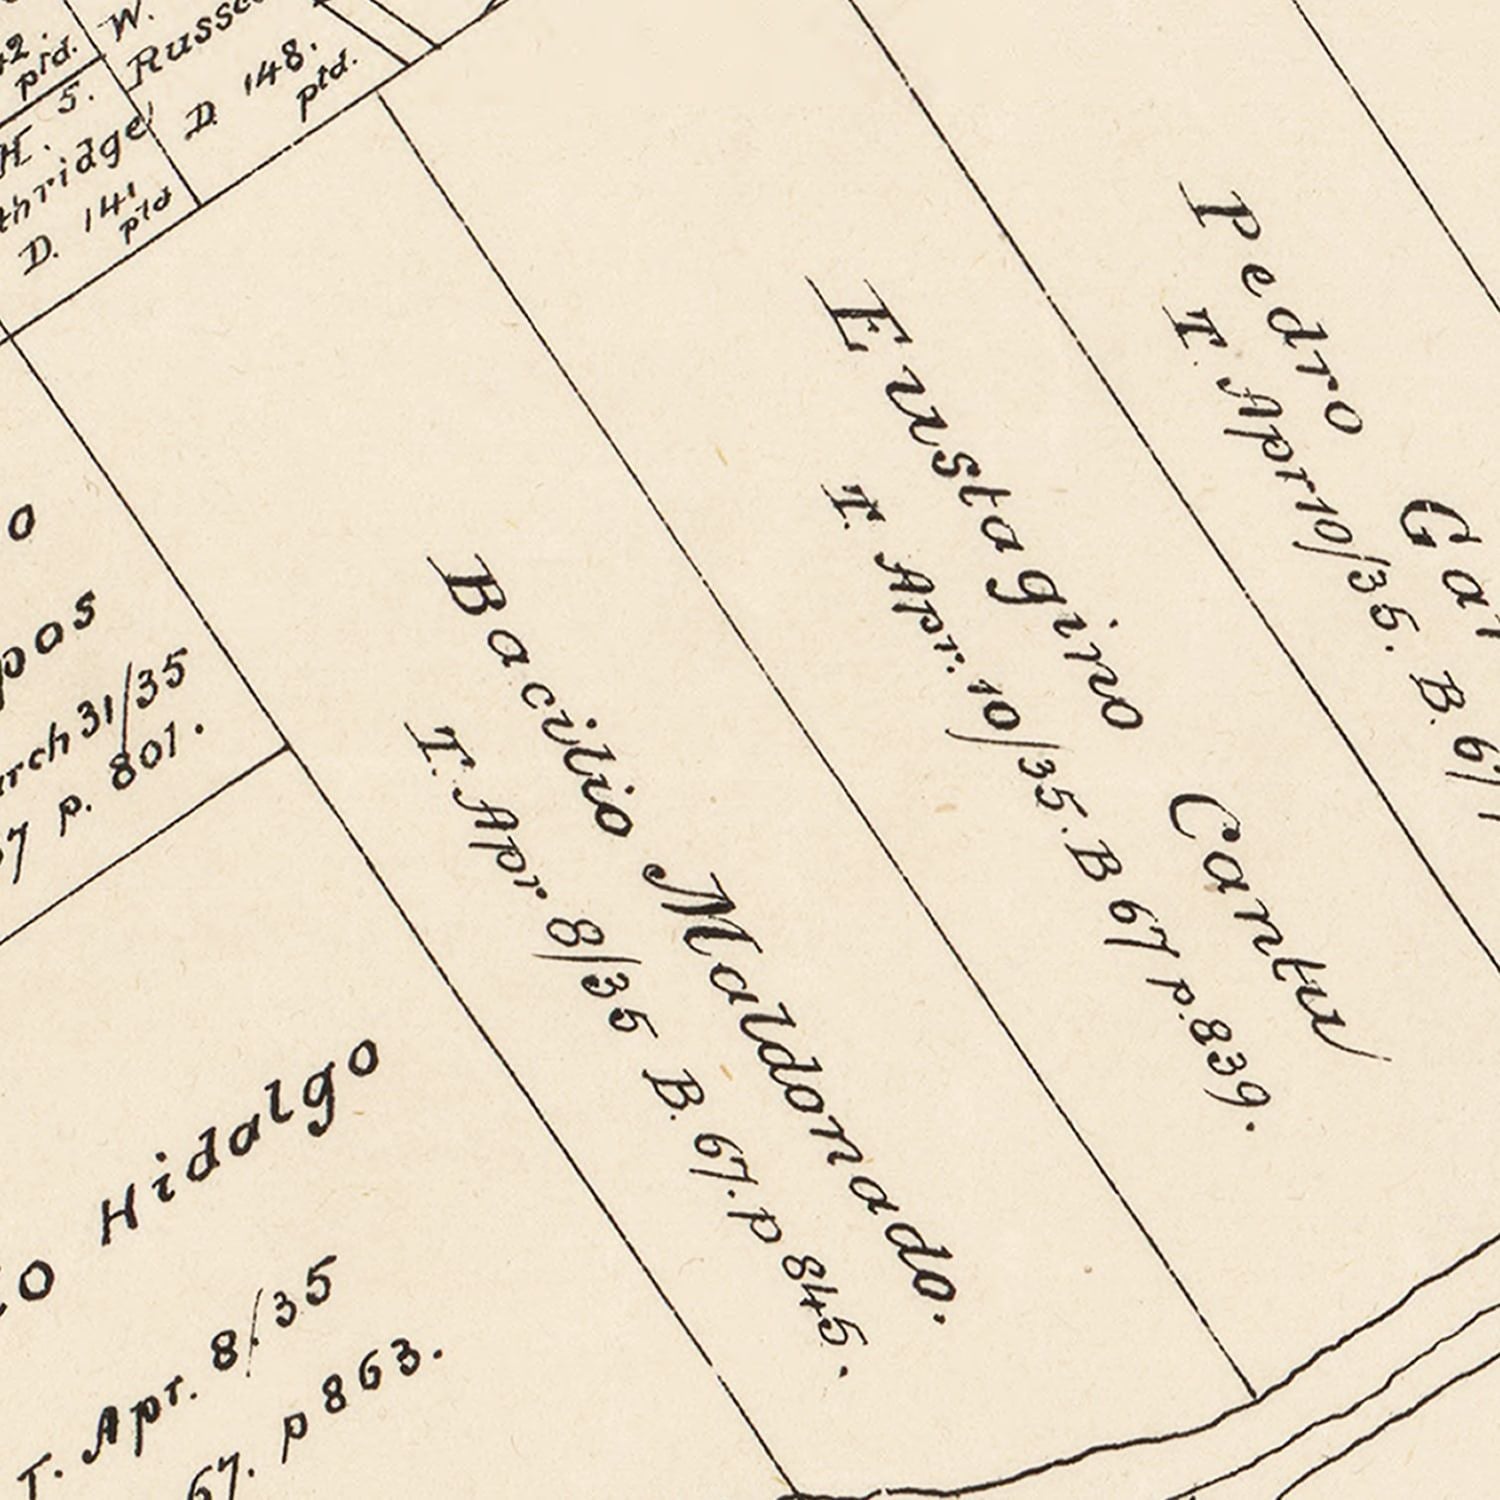 42.
ptd.
W.
Russe
D 148.
ptd.
H. S.
thridge
D. 141
ptd
o
pos
arch 31/35
67 p. 801.
to Hidalgo
T. Apr. 8/35
67. p 863.
Bacilio Maldonado.
T. Apr 8/35 B. 67. p 845.
Eustagino Cantu
T. Apr. 10/35. B 67 p. 839.
Pedro
T. Apr 10/35. B. 67